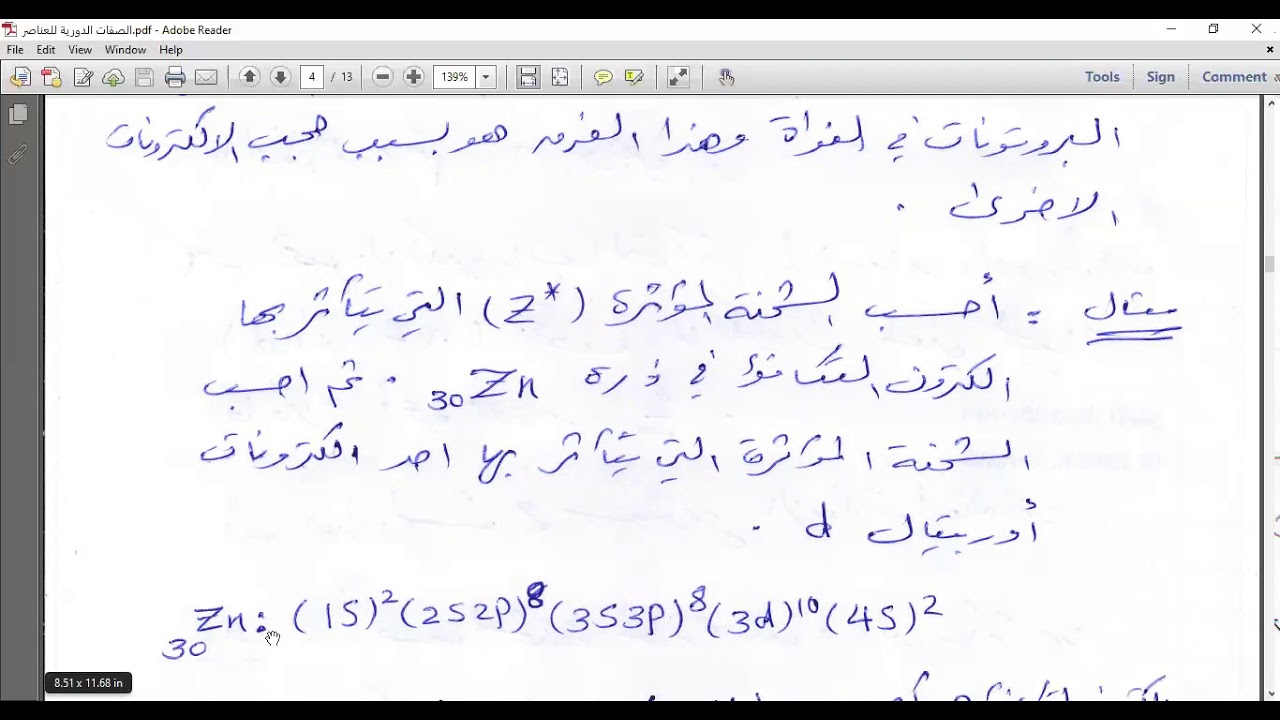 الصفات الدورية للعناصر.pdf - Adobe Reader
File Edit View Window Help
4 / 13 139% Tools Sign Comment
البروتونات في النواة وهذا الفرق هو بسبب حجب الالكترونات
الاخرى .
مثال : أحسب الشحنة المؤثرة (Z*) التي يتأثر بها
الكترون التكافؤ في ذرة 30Zn . ثم احسب
الشحنة المؤثرة التي يتأثر بها احد الكترونات
أوربيتال d .
30Zn: (1S)²(2S2P)⁸(3S3P)⁸(3d)¹⁰(4S)²
8.51 x 11.68 in